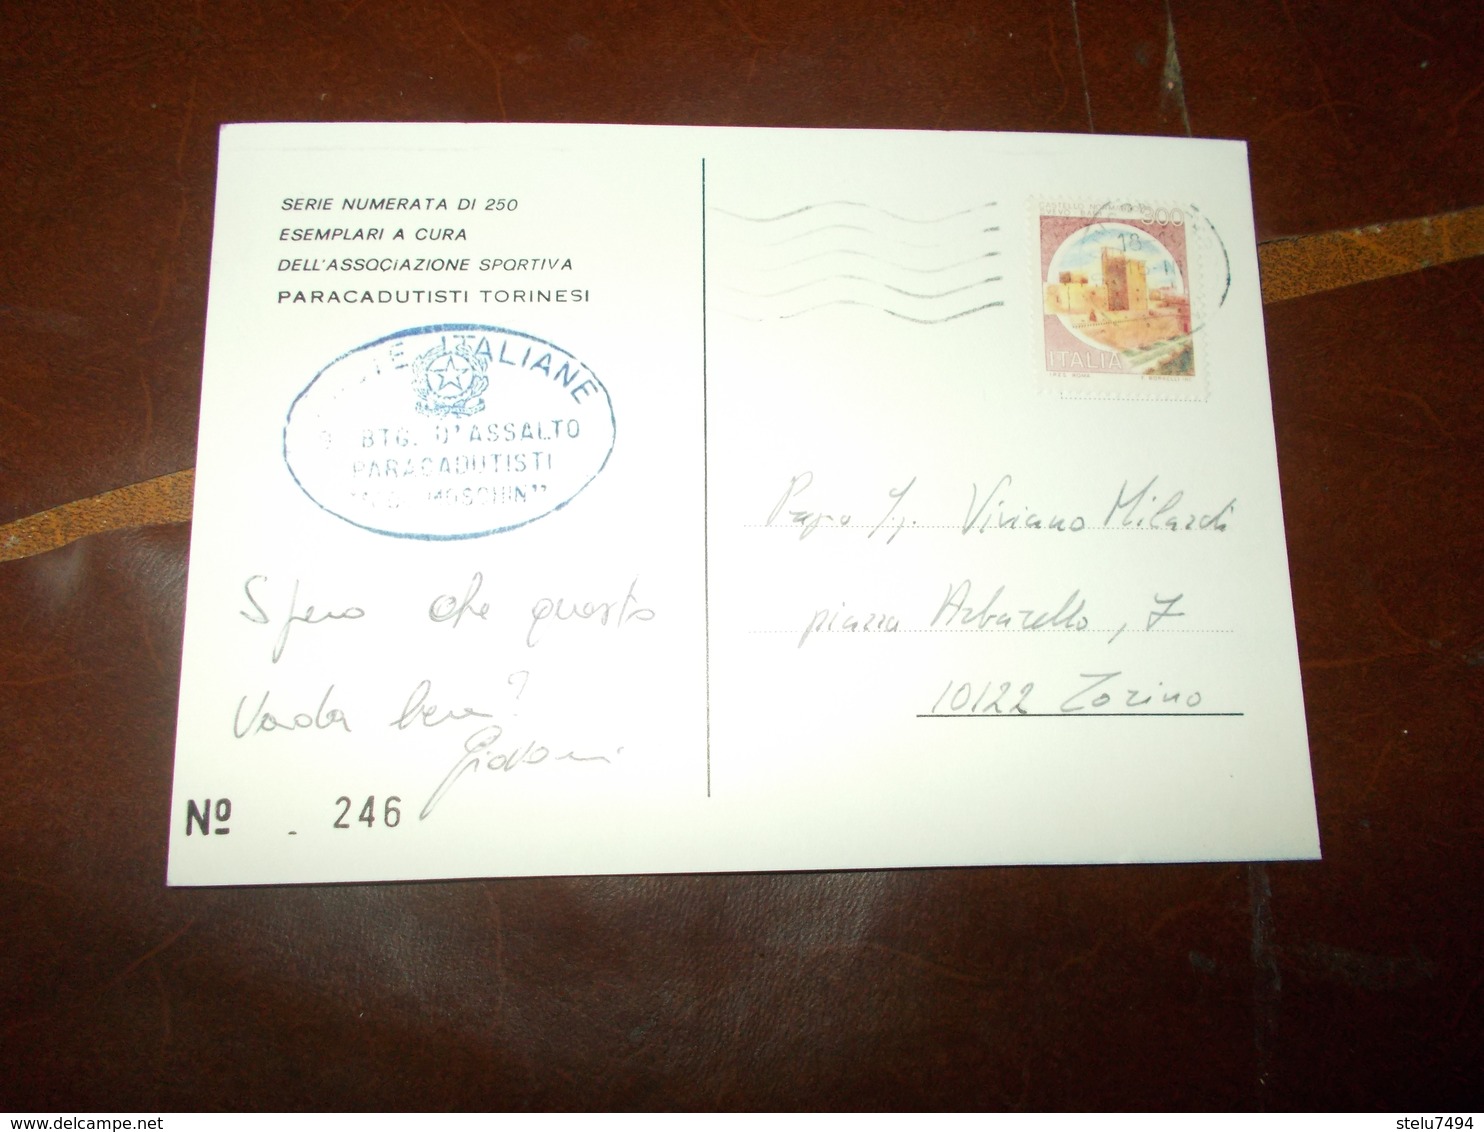 SERIE NUMERATA DI 250
ESEMPLARI A CURA
DELL'ASSOCIAZIONE SPORTIVA
PARACADUTISTI TORINESI
ITALIANE
BTG. D'ASSALTO
PARACADUTISTI
MOSCHIN"
Spero che questo
Vada bene?
Giovanni
Nº 246
CASTELLO
800
18
ITALIA
Viviano Milardi
piazza Arbarello, 7
10122 Torino
stelu7494